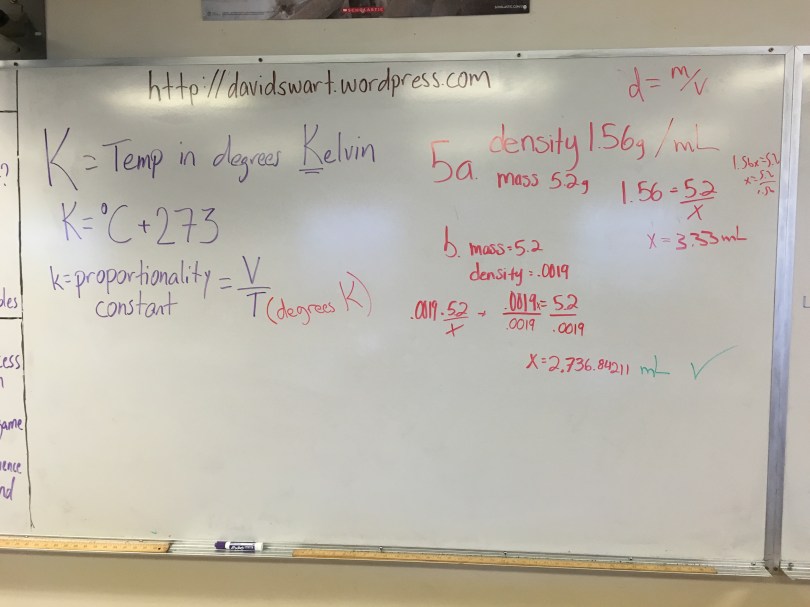 SCHOLASTIC
http://davidswart.wordpress.com
K = Temp in degrees Kelvin
K = °C + 273
k = proportionality constant = V/T (degrees K)
d = m/V
5a. density 1.56g/mL
mass 5.2g
1.56 = 5.2/x
1.56x = 5.2
x = 3.33mL
b. mass = 5.2
density = .0019
.0019 . 5.2/x → .0019x/.0019 = 5.2/.0019
x = 2,736.84211 mL ✓
?
les
ess
n
ame
ience
nd
L